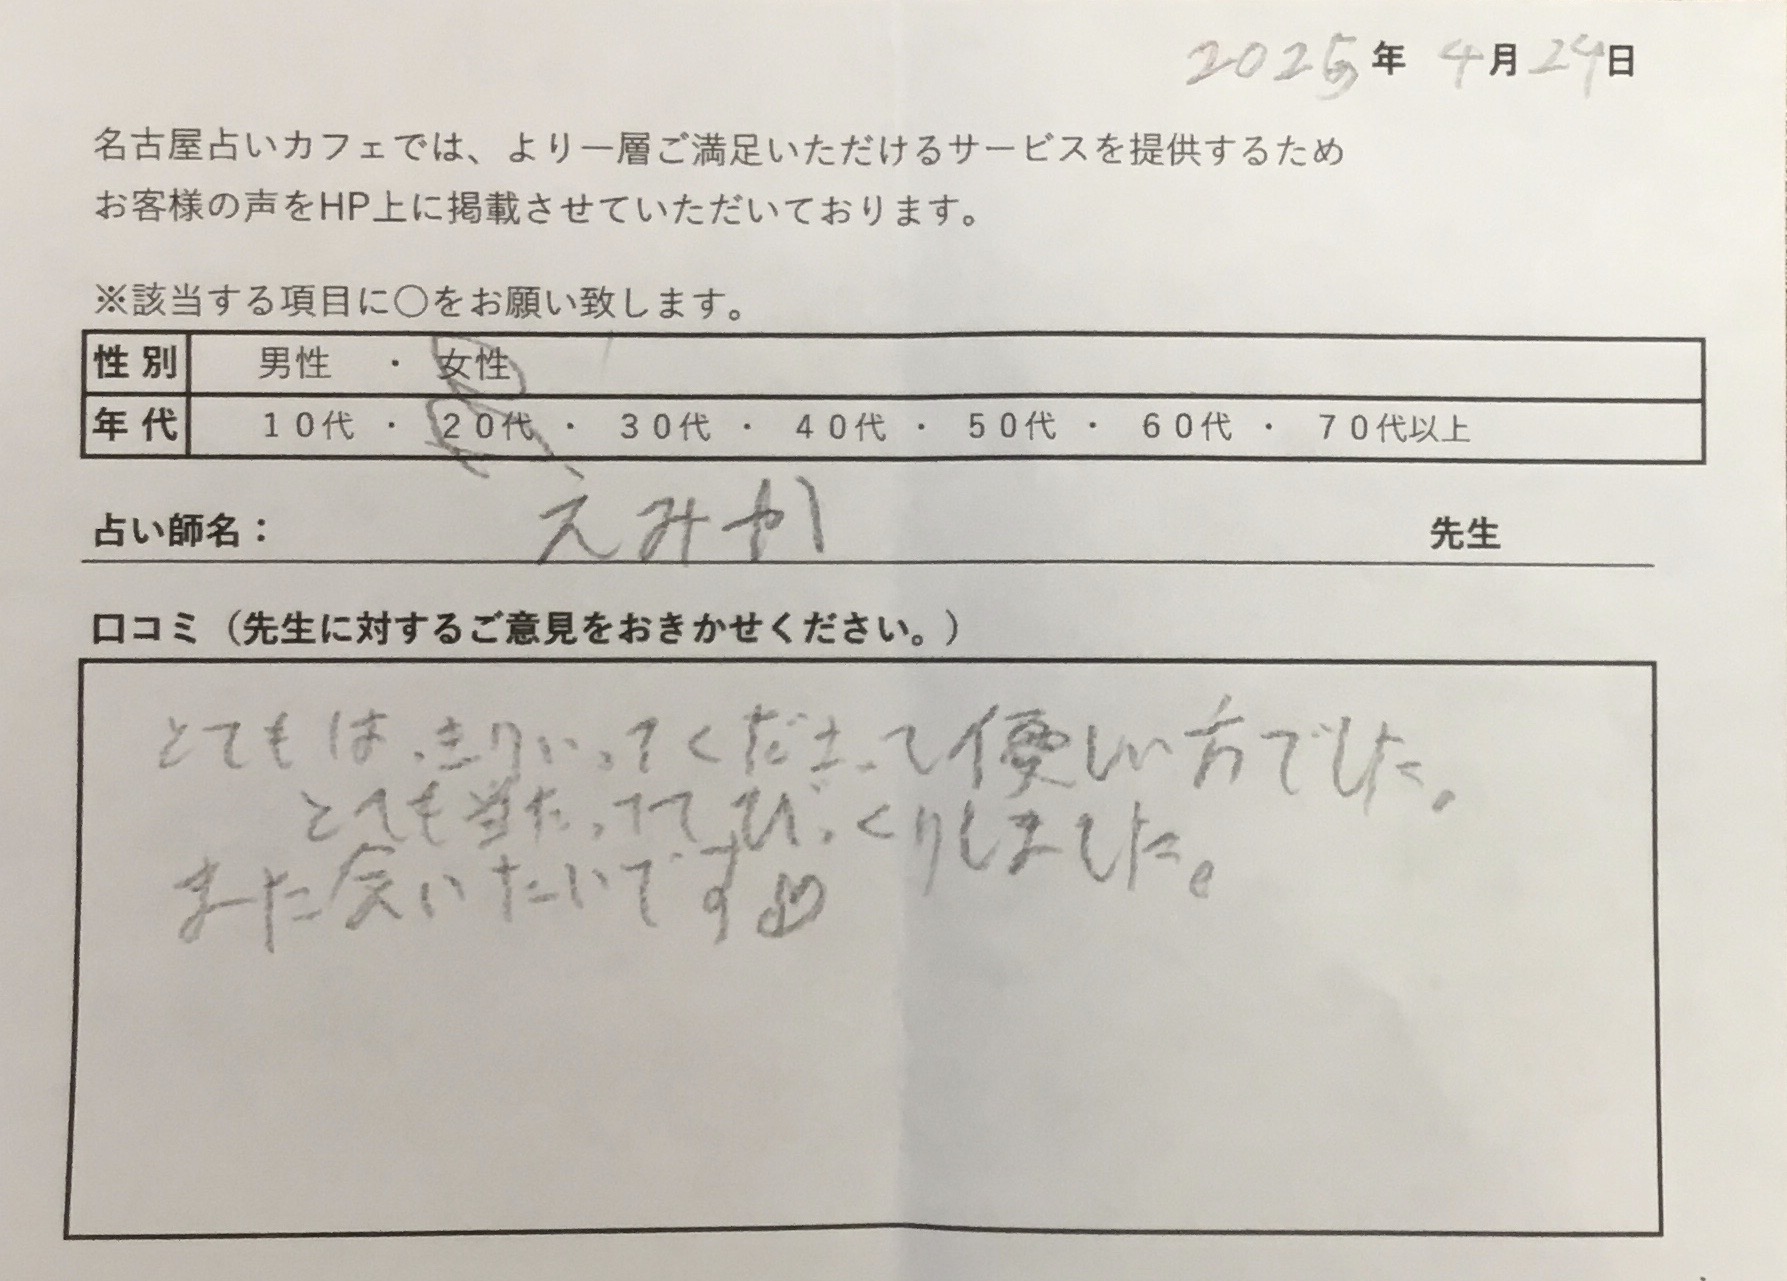 2025年 4月24日
名古屋占いカフェでは、より一層ご満足いただけるサービスを提供するため
お客様の声をHP上に掲載させていただいております。
※該当する項目に〇をお願い致します。
性別 男性 ・ 女性
年代 10代 ・ 20代 ・ 30代 ・ 40代 ・ 50代 ・ 60代 ・ 70代以上
占い師名： えみか 先生
口コミ（先生に対するご意見をおきかせください。）
とてもはっきりいってくださって優しい方でした。
とても当たってて びっくりしました。
また会いたいです♡